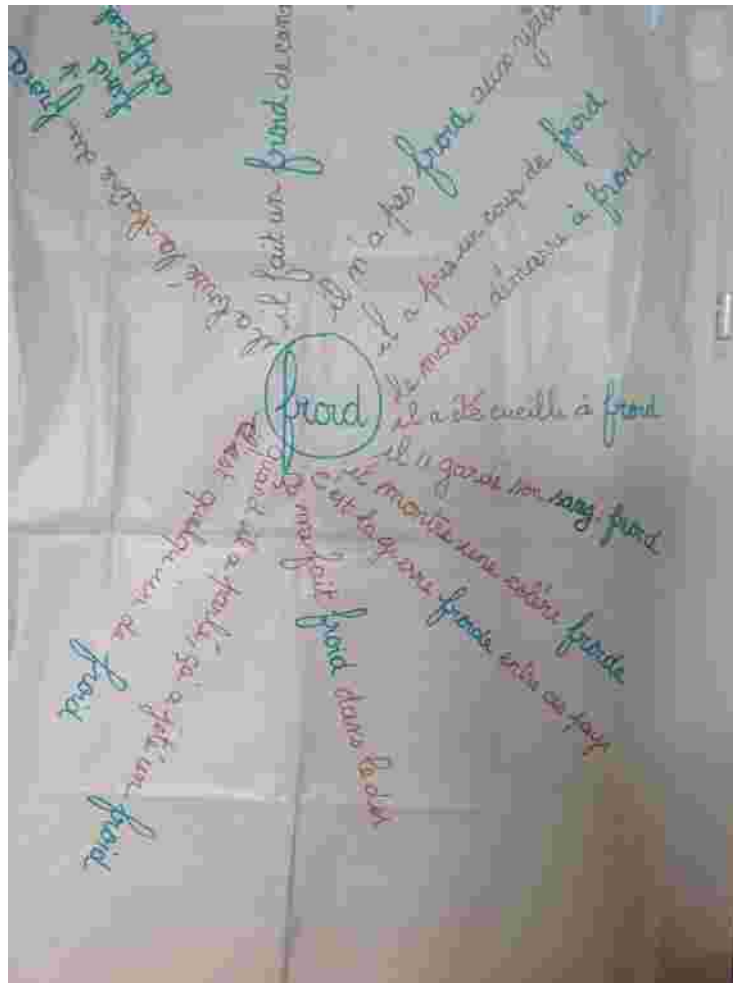 froid
il a brisé la chaîne du froid
froid artificiel
il fait un froid de can
il n'a pas froid aux yeux
il a pris un coup de froid
le moteur démarre à froid
il a été cueilli à froid
il a gardé son sang-froid
il montre une colère froide
c'est la guerre froide entre ces pays
ça me fait froid dans le dos
quand il a parlé, ça a jeté un froid
c'est quelqu'un de froid